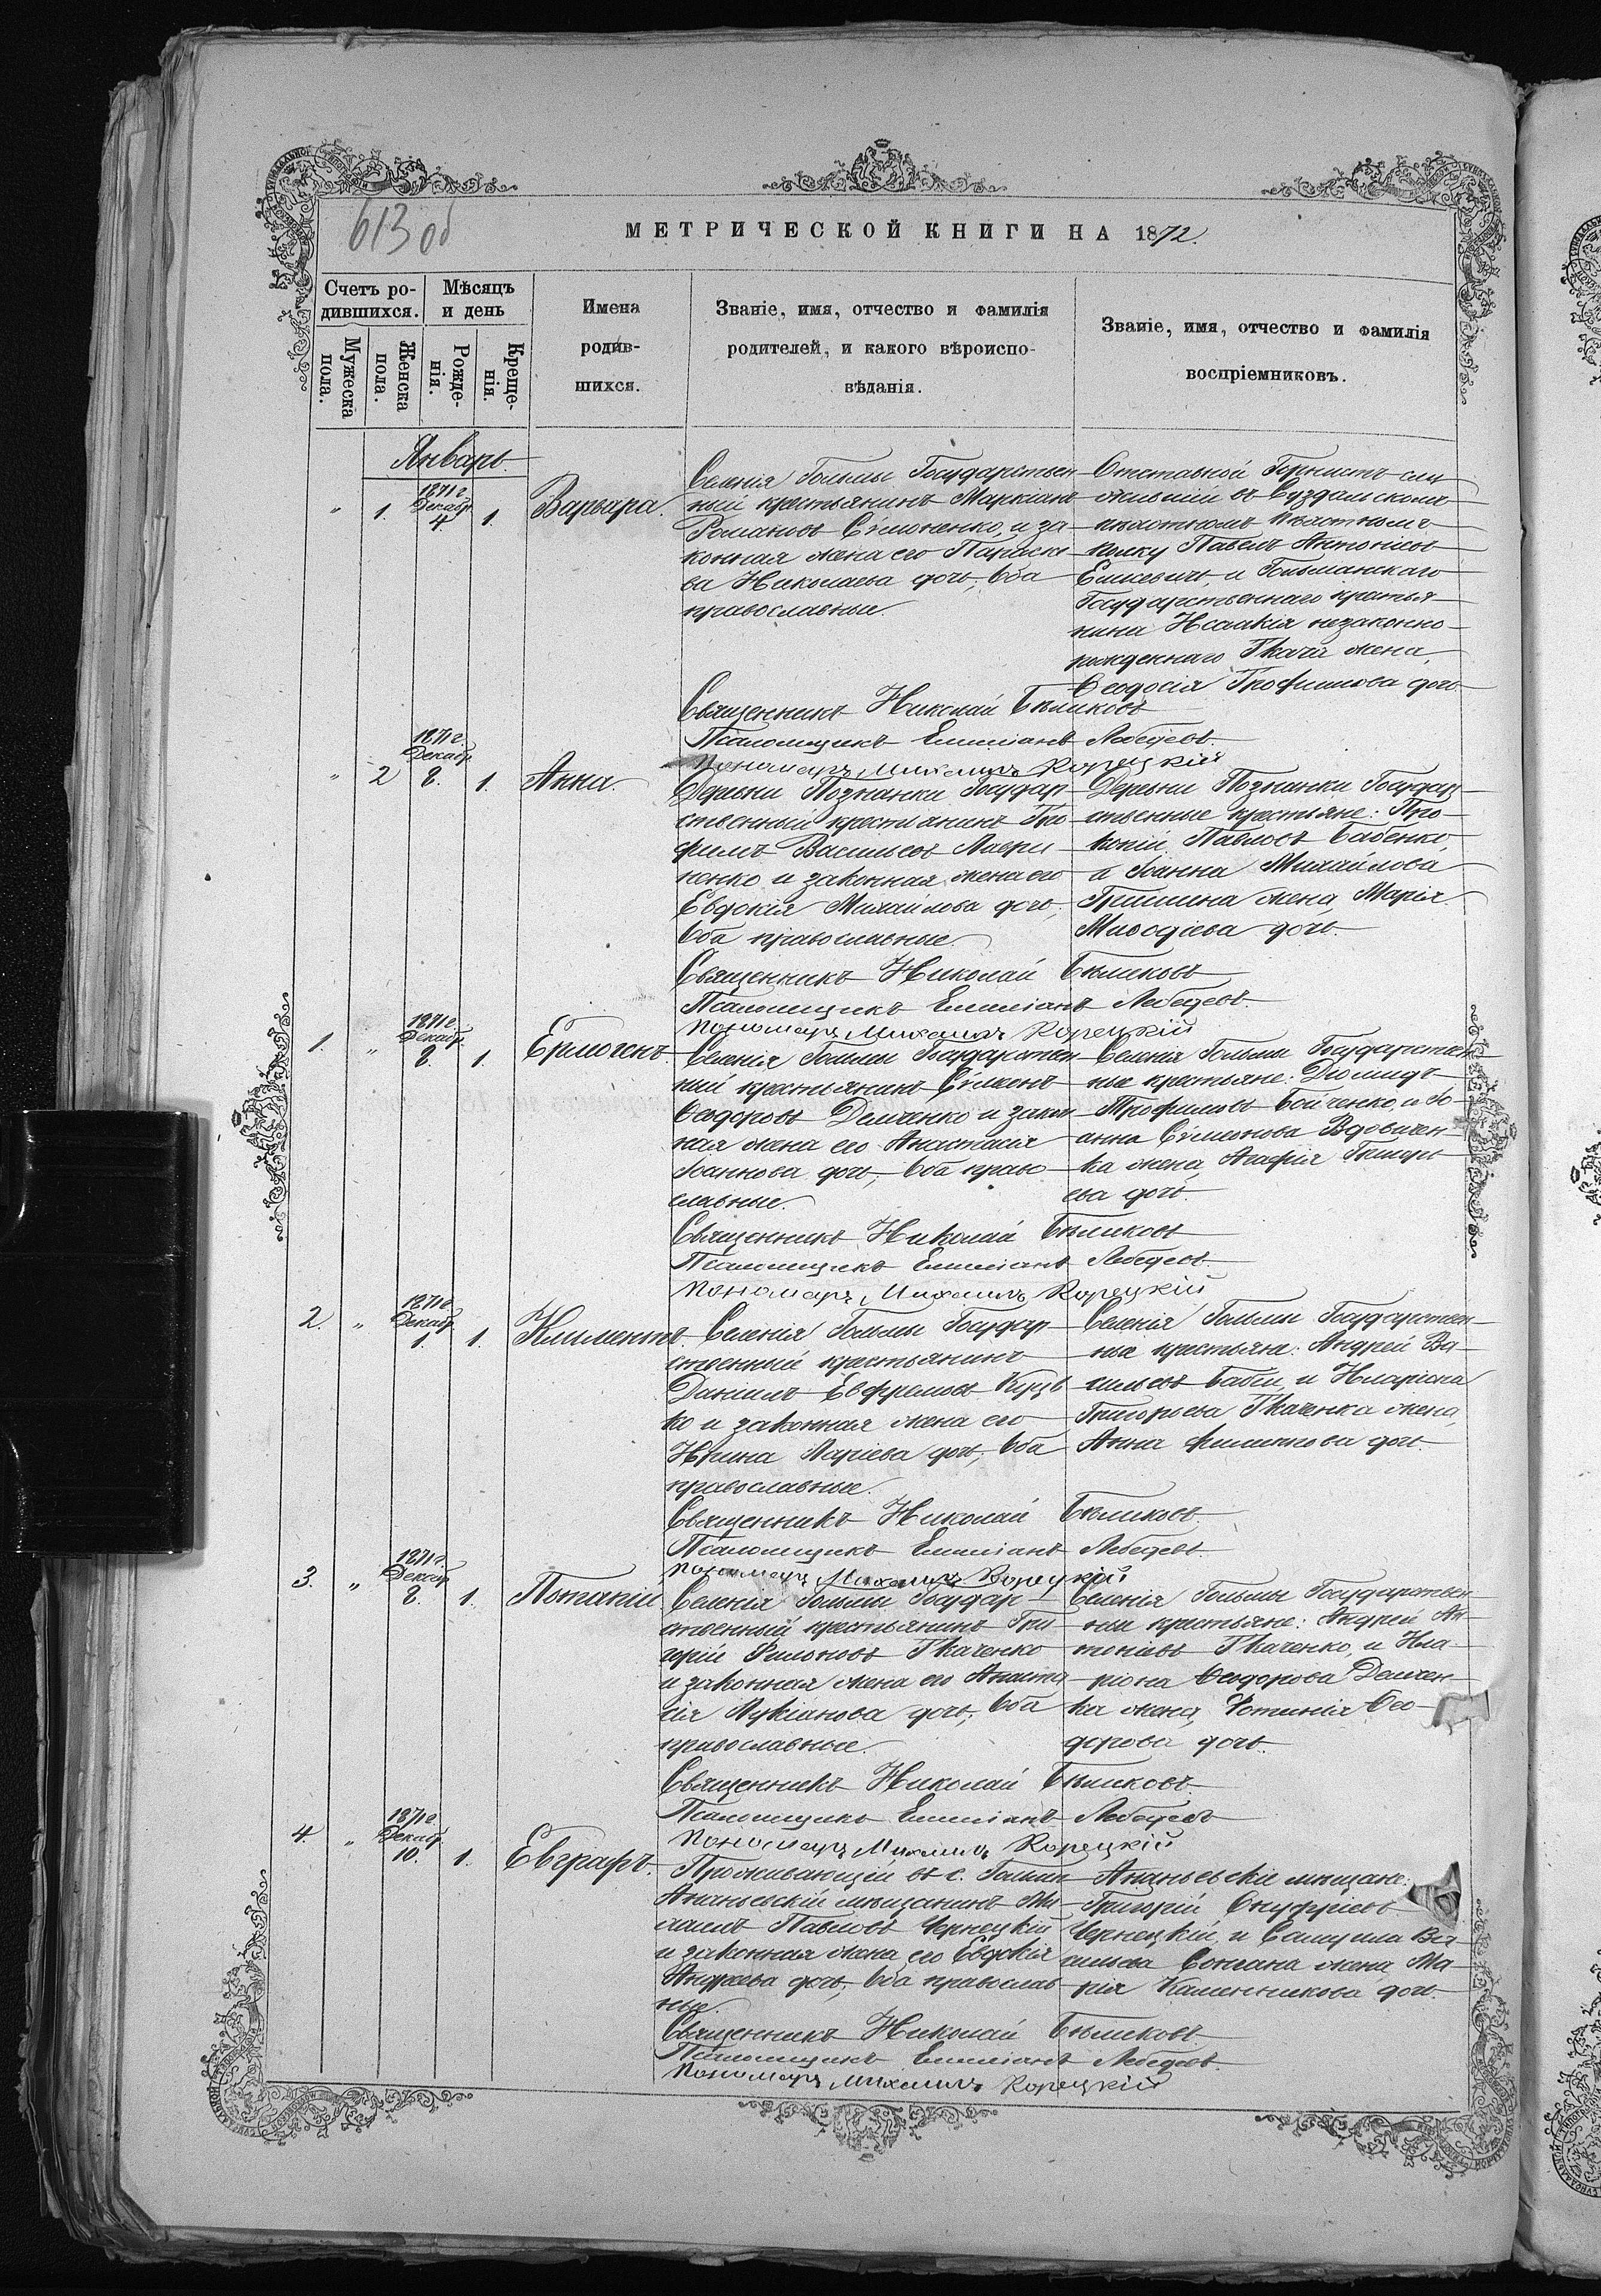 613 об
МЕТРИЧЕСКОЙ КНИГИ НА 1872.
Счетъ ро-
дившихся.
Мѣсяцъ
и день
Мужеска
пола.
Женска
пола.
Рожде-
нія.
Креще-
нія.
Имена
родив-
шихся.
Званіе, имя, отчество и фамилія
родителей, и какого вѣроиспо-
вѣданія.
Званіе, имя, отчество и фамилія
воспріемниковъ.
Январь
" 1. 1871 г. Декабр. 4 1. Варвара.
Селенія Гольмы Государствен
ный крестьянинъ Маркіанъ
Романовъ Симоненко, и за-
конная жена его Параске
ва Николаева дочь, оба
православные.
Отставной Горнистъ слу
жившій въ Суздальскомъ
пѣхотномъ
полку Павелъ Антоніевъ
и Гольманскаго
Государственнаго крестья-
нина Исаакія незаконно-
рожденнаго Ткача жена,
Ѳеодосія Трофимова дочь
Священникъ Николай Бѣликовъ
Псаломщикъ Емиліанъ Лебедевъ.
Пономарь Михаилъ Корецкій
" 2 1871 г. Декабр. 8. 1. Анна.
Деревни Познанки Государ-
ственный крестьянинъ Тро
фимъ Васильевъ Лаври
ненко и законная жена его
Евдокія Михайлова дочь,
оба православные.
Деревни Познанки Государ-
ственные крестьяне: Про-
копій Павловъ Бабенко,
и Іоанна Михайлова
Гришина жена, Марія
Меѳодіева дочь.
Священникъ Николай Бѣликовъ
Псаломщикъ Емиліанъ Лебедевъ.
Пономарь Михаилъ Корецкій
1. " 1871 г. Декабр. 8. 1. Ермогенъ.
Селенія Гольмы Государствен
ный крестьянинъ Симеонъ
Ѳеодоровъ Демченко и закон
ная жена его Анастасія
Іоаннова дочь, оба право
славные.
Селенія Гольмы Государствен-
ные крестьяне: Діомидъ
Трофимовъ Бойченко, и Іо-
анна Симеонова Вдовичен-
ка жена, Агафія
ева дочь.
Священникъ Николай Бѣликовъ
Псаломщикъ Емиліанъ Лебедевъ.
Пономарь Михаилъ Корецкій
2. " 1871 г. Декабр. 1. 1. Климентъ.
Селенія Гольмы Государ
ственный крестьянинъ
Даніилъ Евфремовъ
ко и законная жена его
Ирина Ларіева дочь, оба
православные.
Селенія Гольмы Государствен-
ные крестьяне: Андрей Ва-
сильевъ Бабій, и Иларіона
Григорьева Ткаченка жена,
Анна Филиппова дочь.
Священникъ Николай Бѣликовъ
Псаломщикъ Емиліанъ Лебедевъ.
Пономарь Михаилъ Корецкій
3. " 1871 г. Декабр. 8. 1. Потапій
Селенія Гольмы Государ-
ственный крестьянинъ Гри
горій Филоновъ Ткаченко
и законная жена его Анаста
сія Лукіанова дочь, оба
православные.
Селенія Гольмы Государствен
ные крестьяне: Андрей Ан-
тоніевъ Ткаченко, и Ила-
ріона Ѳеодорова Демчен-
ка жена, Фотинія Ѳео-
дорова дочь.
Священникъ Николай Бѣликовъ
Псаломщикъ Емиліанъ Лебедевъ
Пономарь Михаилъ Корецкій
4. " 1871 г. Декабр. 10. 1. Евграфъ.
Проживающій въ с. Гольмѣ
Ананьевскій мѣщанинъ Ми
хаилъ Павловъ Чернецкій
и законная жена его Евдокія
Андреева дочь, оба православ
ные.
Ананьевскіе мѣщане:
Григорій Онуфріевъ
Чернецкій, и Самуила Ва-
сильева жена, Ма-
рія Каменникова дочь.
Священникъ Николай Бѣликовъ
Псаломщикъ Емиліанъ Лебедевъ.
Пономарь Михаилъ Корецкій